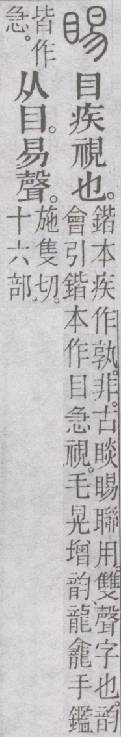 睗 目疾視也。鍇本疾作孰。非。古睒睗聯用。雙聲字也。韵
會引鍇本作目急視。毛晃增韵龍龕手鑑
皆作
急。
从目。易聲。施隻切。
十六部。